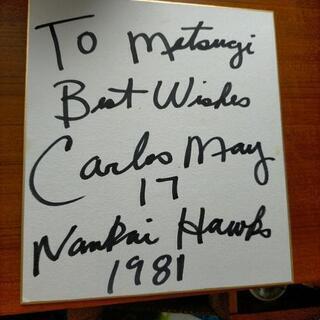 To Metsugi
Best Wishes
Carlos May
17
Nankai Hawks
1981